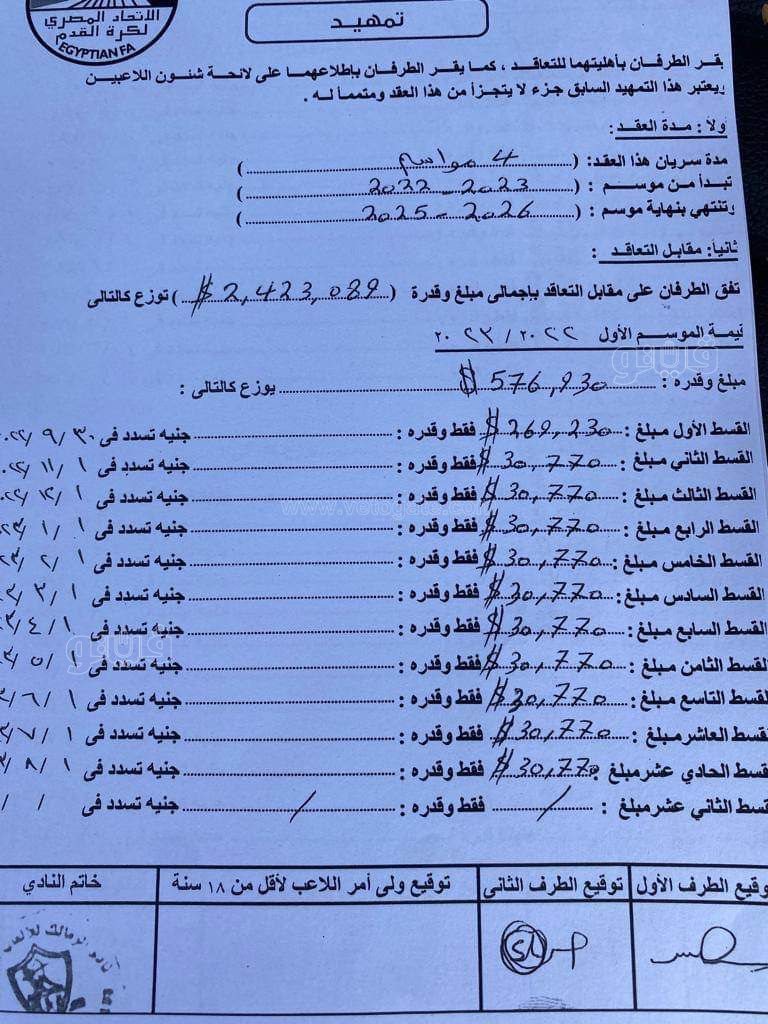 الاتحاد المصري
لكرة القدم
EGYPTIAN FA
تمهيد
يقر الطرفان بأهليتهما للتعاقد ، كما يقر الطرفان بإطلاعهما على لائحة شئون اللاعبين
ويعتبر هذا التمهيد السابق جزء لا يتجزأ من هذا العقد ومتمماً له .
ولاً : مدة العقد :
مدة سريان هذا العقد: ( 4 مواسم )
تبدأ من موسم : ( 2022 - 2023 )
وتنتهي بنهاية موسم : ( 2025 - 2026 )
ثانياً: مقابل التعاقد :
تفق الطرفان على مقابل التعاقد بإجمالى مبلغ وقدرة ( $ 2,423,089 ) توزع كالتالى
قيمة الموسم الأول ٢٠٢٢ / ٢٠٢٣
مبلغ وقدره : $ 576,930 يوزع كالتالى :
القسط الأول مبلغ : $ 269,230 فقط وقدره : جنيه تسدد فى ٢٠٢٢/٩/٣٠
القسط الثاني مبلغ : $ 30,770 فقط وقدره : جنيه تسدد فى ٢٠٢٢/١١/١
القسط الثالث مبلغ : $ 30,770 فقط وقدره : جنيه تسدد فى ٢٠٢٢/١٢/١
القسط الرابع مبلغ : $ 30,770 فقط وقدره : جنيه تسدد فى ٢٣/١/١
القسط الخامس مبلغ : $ 30,770 فقط وقدره : جنيه تسدد فى ٢٣/٢/١
القسط السادس مبلغ : $ 30,770 فقط وقدره : جنيه تسدد فى ٢٣/٣/١
القسط السابع مبلغ : $ 30,770 فقط وقدره : جنيه تسدد فى ٣/٤/١
القسط الثامن مبلغ : $ 30,770 فقط وقدره : جنيه تسدد فى ٢٣/٥/١
القسط التاسع مبلغ : $ 30,770 فقط وقدره : جنيه تسدد فى ٣/٦/١
القسط العاشر مبلغ : $ 30,770 فقط وقدره : جنيه تسدد فى ٣/٧/١
قسط الحادي عشر مبلغ : $ 30,770 فقط وقدره : جنيه تسدد فى ٣/٨/١
قسط الثاني عشر مبلغ : / فقط وقدره : / جنيه تسدد فى / /
وقيع الطرف الأول توقيع الطرف الثانى توقيع ولى أمر اللاعب لأقل من ١٨ سنة خاتم النادي
نادي الزمالك للألعاب
فيتو
www.vetogate.com
فيتو